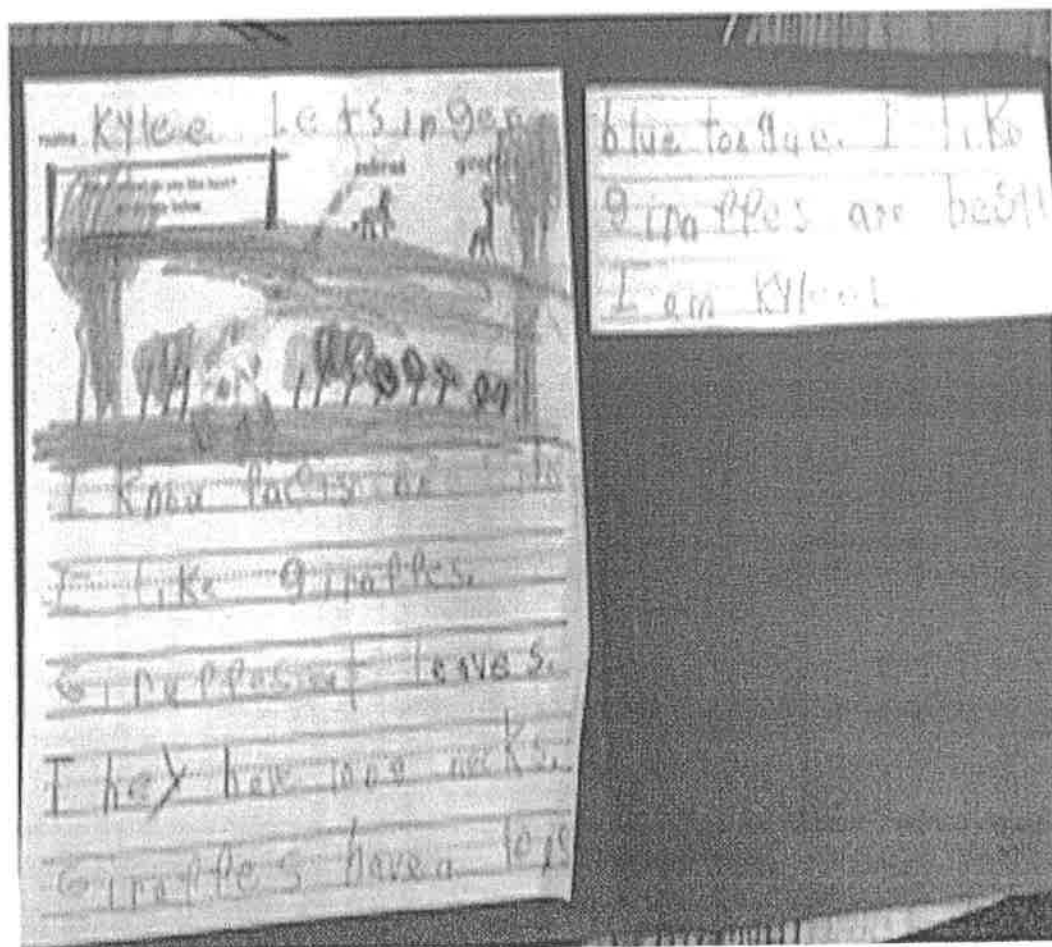 name Kylee Letsinger
zebras
I Know facts
I like giraffes.
Giraffes eat leaves.
They have long necks.
Giraffes have a
blue tongue. I like
giraffes are best!
I am Kylee!